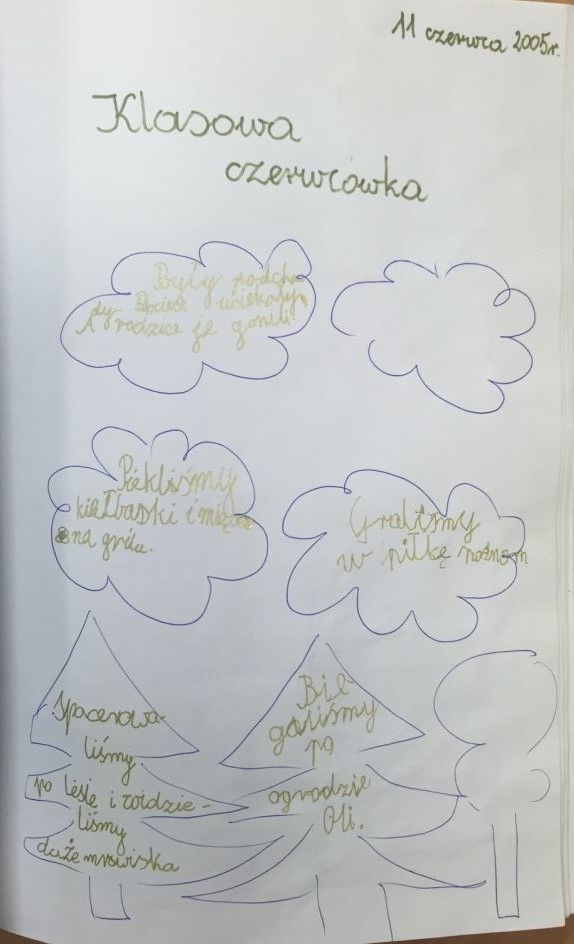 11 czerwca 2005r.
Klasowa
czerwcówka
Były podcho-
dy. Dzieci uciekały,
A rodzice je gonili.
Piekliśmy
kiełbaski i mięso
na grilu.
Graliśmy
w piłkę nożnom
Spacerowa-
liśmy
po lesie i widzie-
liśmy
duże mrowiska
Bie-
galiśmy
po
ogrodzie
Oli.